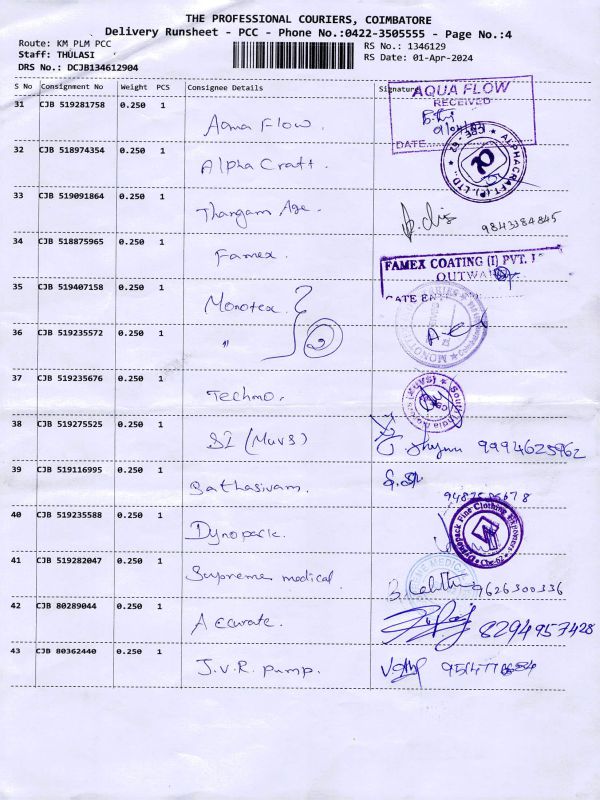 THE PROFESSIONAL COURIERS, COIMBATORE
Delivery Runsheet - PCC - Phone No.:0422-3505555 - Page No.:4
Route: KM PLM PCC
RS No.: 1346129
Staff: THULASI
RS Date: 01-Apr-2024
DRS No.: DCJB134612904
S No Consignment No Weight PCS Consignee Details Signature
31 CJB 519281758 0.250 1 Aqua Flow.
AQUA FLOW
RECEIVED
DATE
32 CJB 518974354 0.250 1 Alpha Craft.
ALPHACRAFT (P) LTD.
33 CJB 519091864 0.250 1 Thangam Age. 9843384845
34 CJB 518875965 0.250 1 Famex.
FAMEX COATING (I) PVT.
OUTWA
GATE EN
35 CJB 519407158 0.250 1 Monotex.
36 CJB 519235572 0.250 1 " 2
37 CJB 519235676 0.250 1 Techno.
South India (MUVS)
38 CJB 519275525 0.250 1 SI (Muvs) 9994625962
39 CJB 519116995 0.250 1 Sathasivam.
40 CJB 519235588 0.250 1 Dynopack.
Dynopack Fine Clothing Exporters
Cbe-62
41 CJB 519282047 0.250 1 Supreme medical. 9626300336
MEDICAL
42 CJB 80289044 0.250 1 Accurate. 8294957428
43 CJB 80362440 0.250 1 J.V.R. pump.